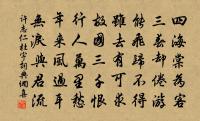 四海常為客
三却倦游
能飛歸不得
雖去有求
故國三千恨
行人萬里愁
年來風過耳
無淚與君流
許志仁杜宇詞典網集